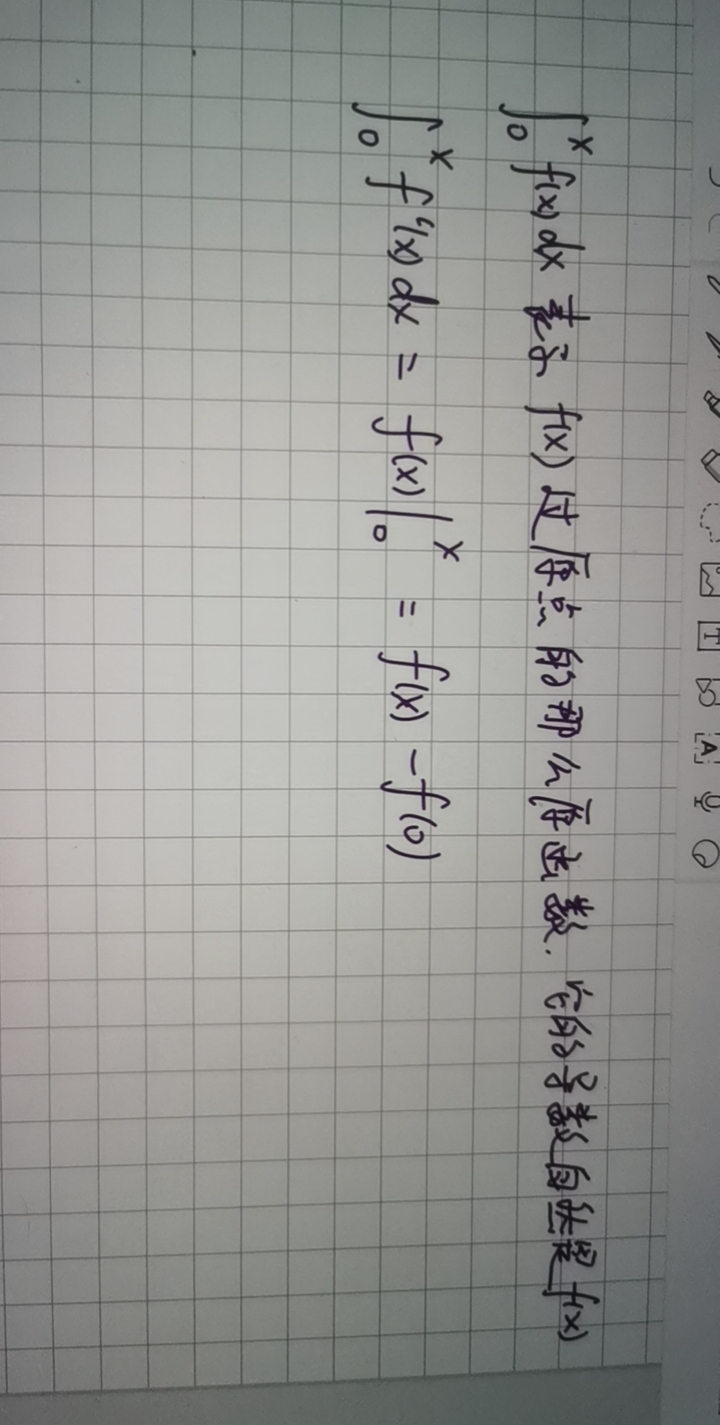 ∫₀ˣ f(x)dx 表示 f(x) 过原点的那个原函数. 它的导数自然是 f(x)
∫₀ˣ f'(x) dx = f(x)|₀ˣ = f(x) - f(0)